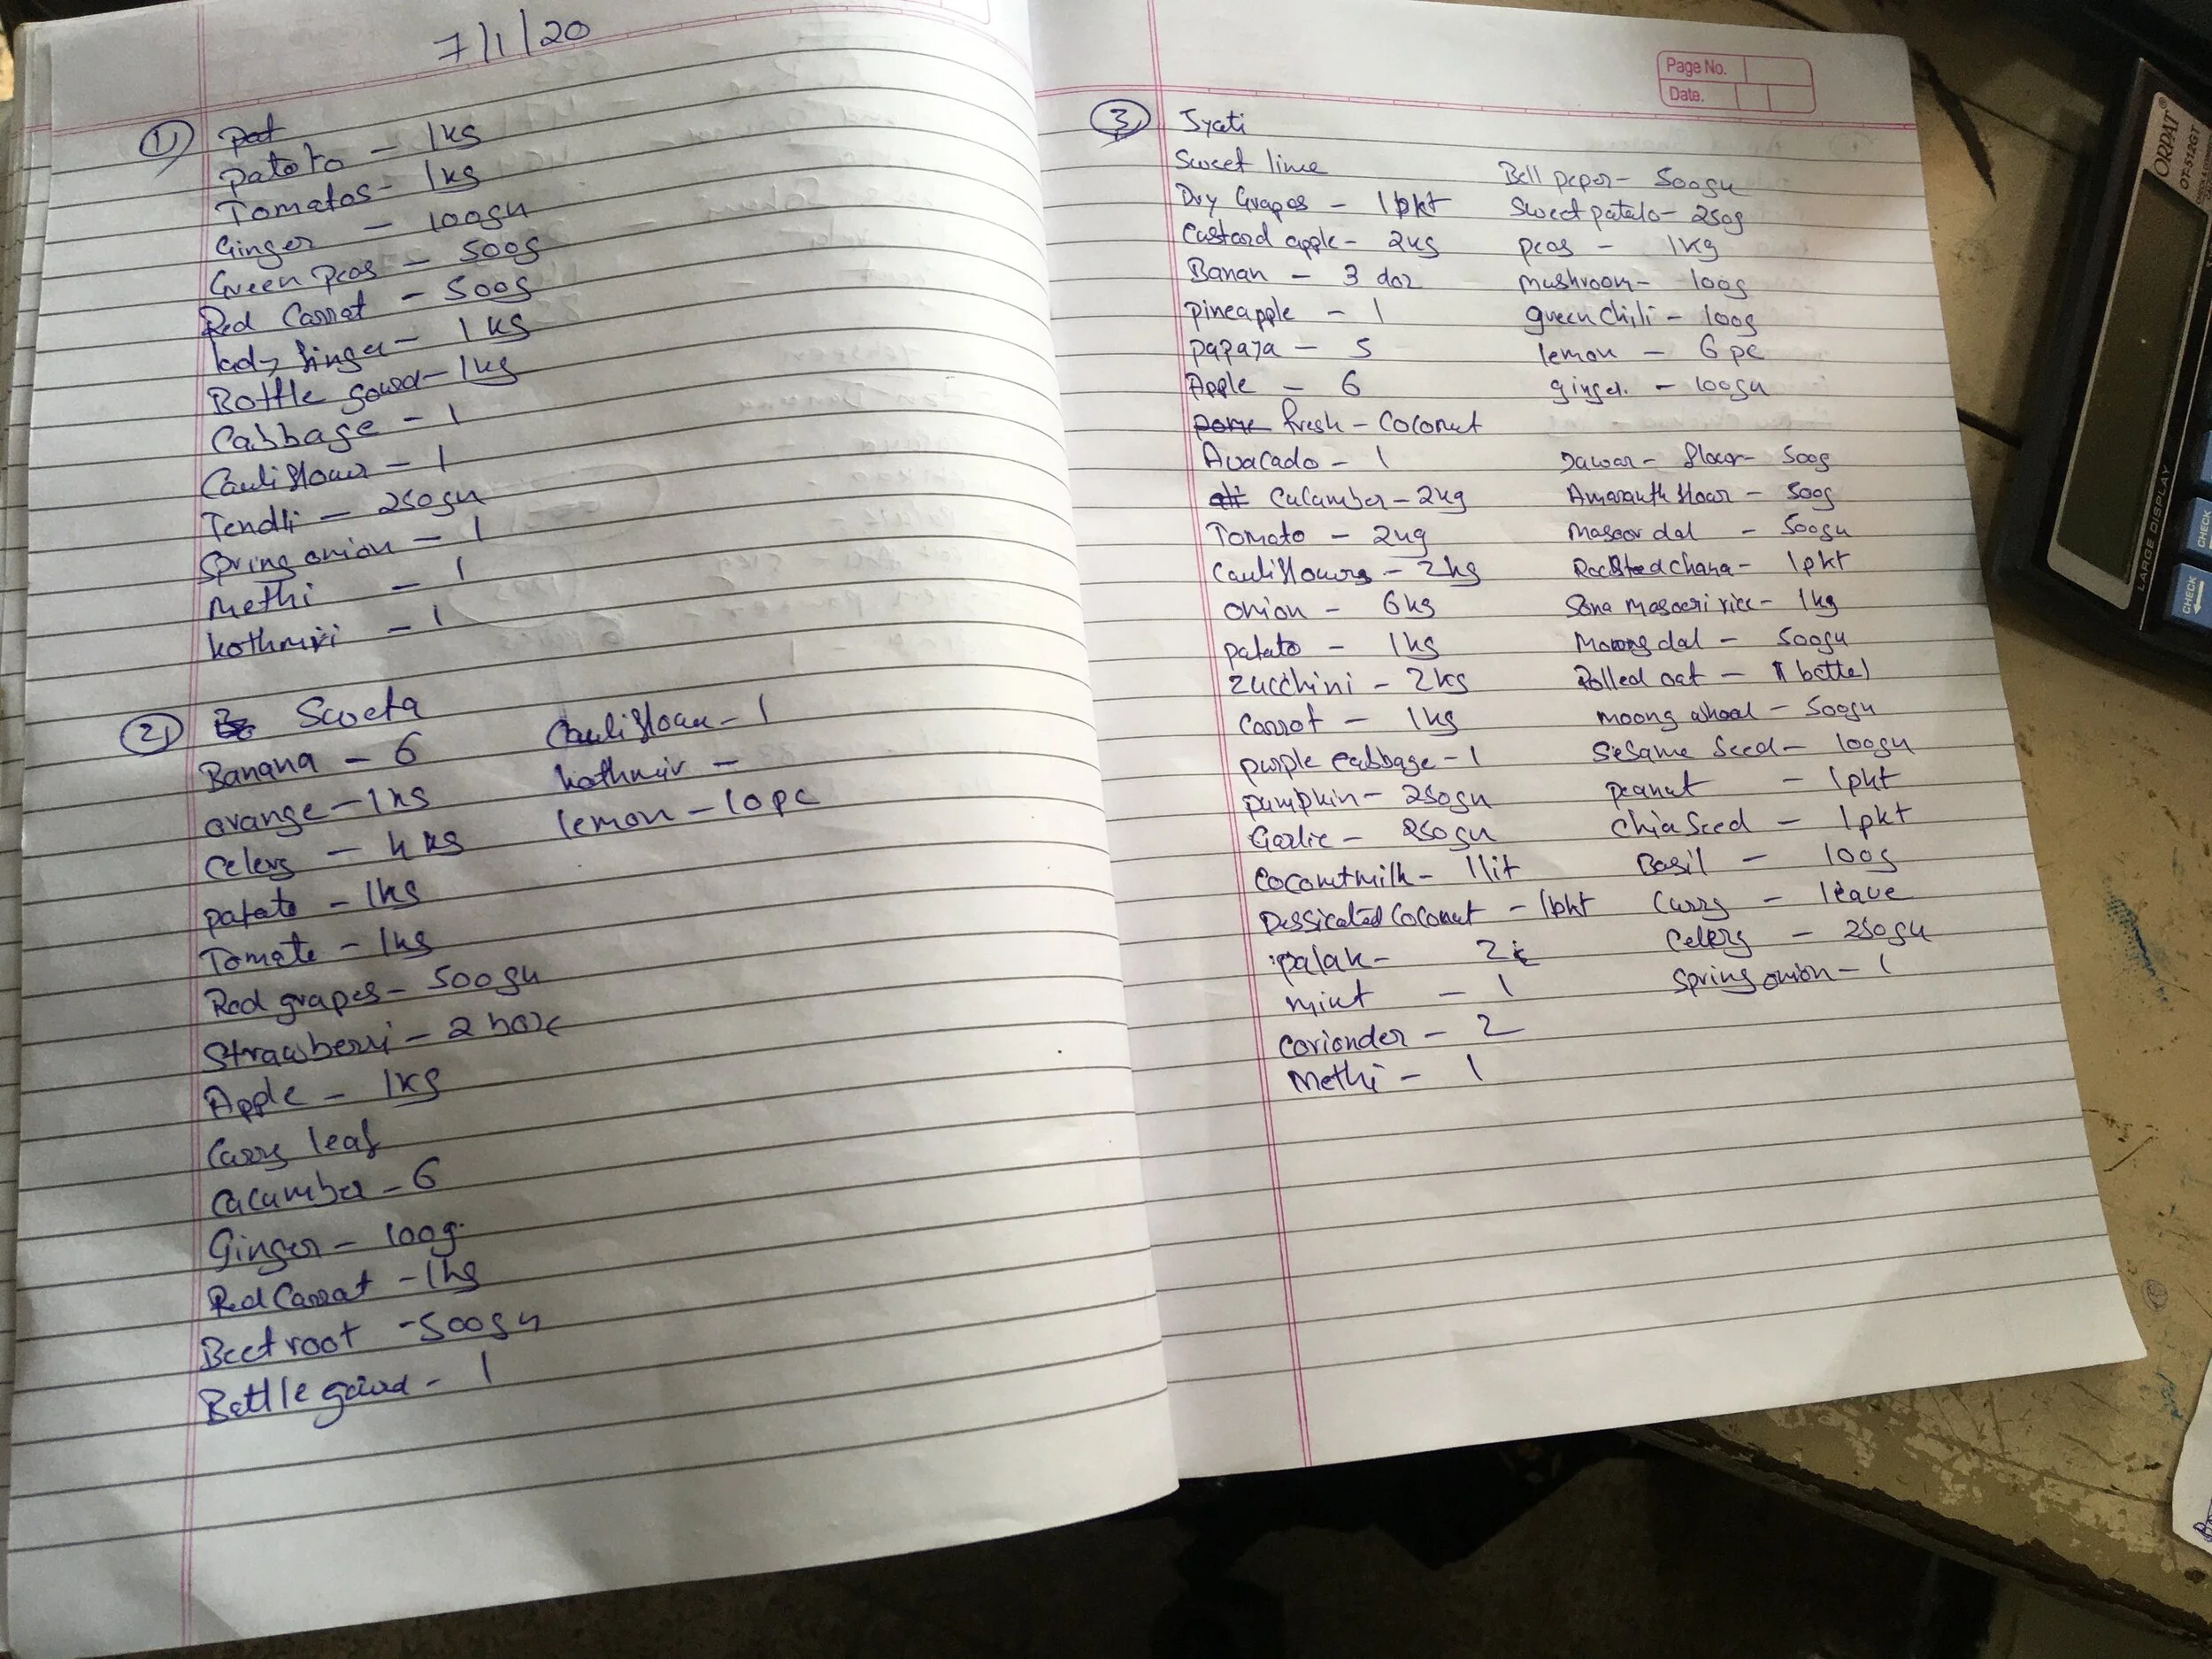 7/1/20
1)
patato - 1kg
Tomatos - 1kg
Ginger - 100gm
Green peas - 500g
Red Carrat - 500g
lady finger - 1kg
Bottle gourd - 1kg
Cabbage - 1
Cauliflower - 1
Tendli - 250gm
Spring onion - 1
Methi - 1
kothmiri - 1
2) Sweta
Banana - 6
orange - 1kg
Celery - 4kg
patato - 1kg
Tomato - 1kg
Red grapes - 500gm
Strawberri - 2 box
Apple - 1kg
Curry leaf
Cucumber - 6
Ginger - 100g.
Red Carrat - 1kg
Beet root - 500gm
Bottle gourd - 1
Cauliflower - 1
kothmir -
lemon - 10pc
Page No.
Date.
3) Jyati
Sweet lime
Dry Grapes - 1pkt
Custard apple - 2kg
Banan - 3 doz
pineapple - 1
papaya - 5
Apple - 6
fresh - Coconut
Avacado - 1
Cucumber - 2kg
Tomato - 2kg
Cauliflowers - 2kg
onion - 6kg
patato - 1kg
Zucchini - 2kg
Carrot - 1kg
purple cabbage - 1
pumpkin - 250gm
Garlic - 250gm
Coconutmilk - 1lit
Dessicated Coconut - 1pkt
palak - 2
mint - 1
coriander - 2
Methi - 1
Bell peper - 500gm
Sweet patato - 250g
peas - 1kg
mushroom - 100g
green chili - 100g
lemon - 6pc
ginger. - 100gm
Jawar - flour - 500g
Amaranth flour - 500g
Masoor dal - 500gm
Roasted chana - 1pkt
Sona Masoori rice - 1kg
Moong dal - 500gm
Rolled oat - 1 bottel
moong whool - 500gm
Sesame Seed - 100gm
peanut - 1pkt
Chia Seed - 1pkt
Basil - 100g
Curry - leave
Celery - 250gm
Spring onion - 1
ORPAT®
OT-512GT
LARGE DISPLAY
CHECK
CHECK